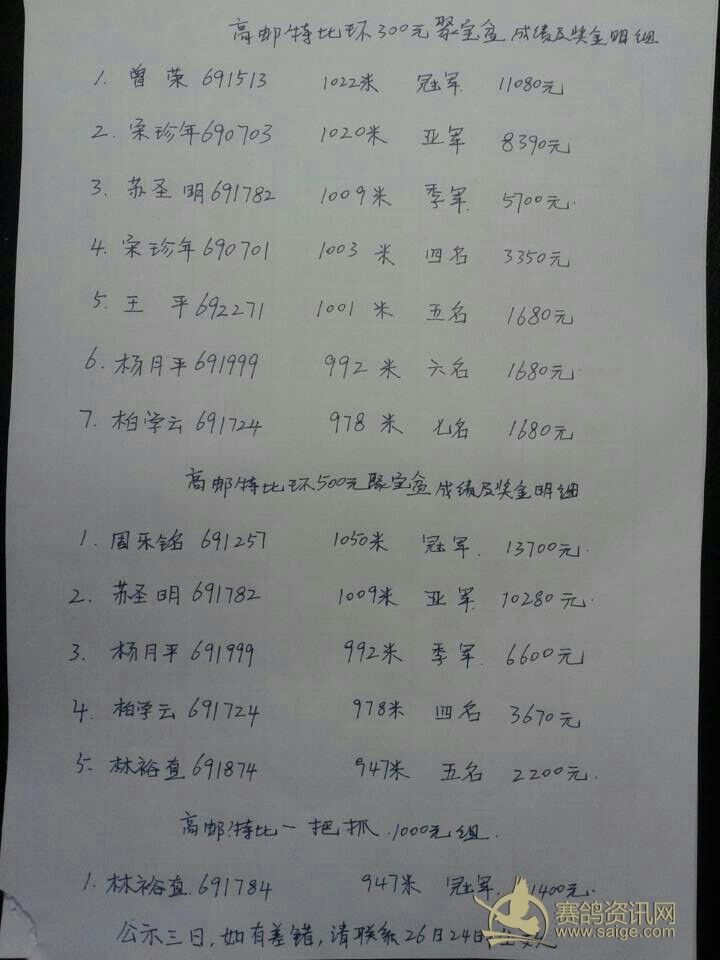 高邮特比环300元聚宝盆成绩及奖金明细
1. 曾荣 691513 1022米 冠军 11080元
2. 宋珍年 690703 1020米 亚军 8390元
3. 苏圣明 691782 1009米 季军 5700元
4. 宋珍年 690701 1003米 四名 3350元
5. 王平 692271 1001米 五名 1680元
6. 杨月平 691999 992米 六名 1680元
7. 柏学云 691724 978米 七名 1680元
高邮特比环500元聚宝盆成绩及奖金明细
1. 周乐铭 691257 1050米 冠军 13700元
2. 苏圣明 691782 1009米 亚军 10280元
3. 杨月平 691999 992米 季军 6600元
4. 柏学云 691724 978米 四名 3670元
5. 林裕直 691874 947米 五名 2200元
高邮特比一把抓1000元组
1. 林裕直 691784 947米 冠军 1400元
公示三日,如有差错,请联系26日24时
赛鸽资讯网
www.saige.com